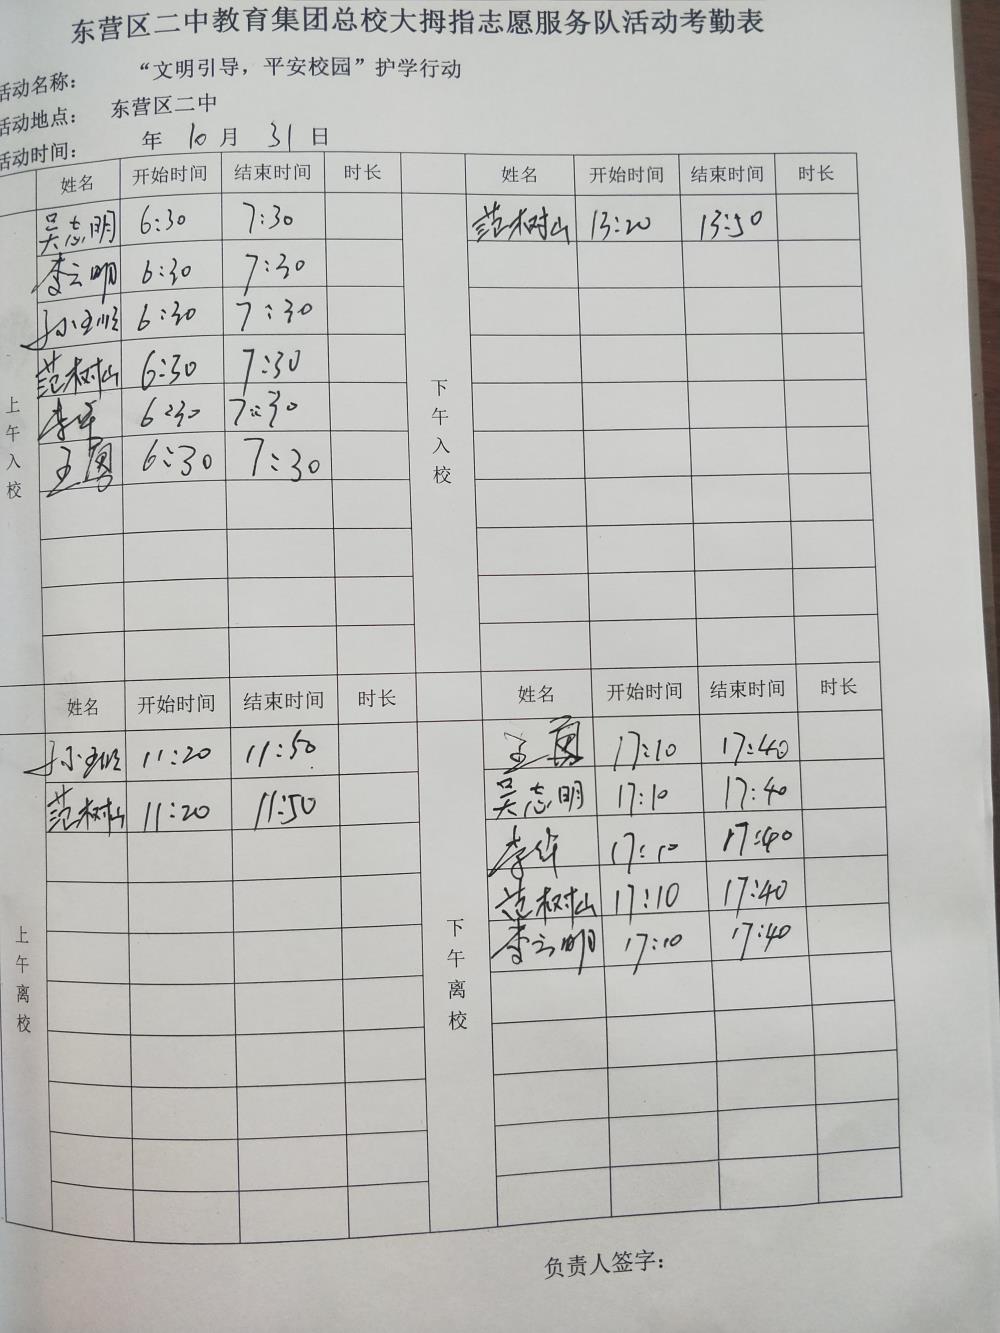 东营区二中教育集团总校大拇指志愿服务队活动考勤表
活动名称： “文明引导，平安校园”护学行动
活动地点： 东营区二中
活动时间： 年 10 月 31 日
姓名 开始时间 结束时间 时长 姓名 开始时间 结束时间 时长
吴志明 6:30 7:30 范树山 13:20 13:50
李云明 6:30 7:30
6:30 7:30
范树山 6:30 7:30
上午入校 下午入校
李华 6:30 7:30
王勇 6:30 7:30
姓名 开始时间 结束时间 时长 姓名 开始时间 结束时间 时长
11:20 11:50 王勇 17:10 17:40
范树山 11:20 11:50 吴志明 17:10 17:40
李华 17:10 17:40
范树山 17:10 17:40
上午离校 下午离校
李云明 17:10 17:40
负责人签字：